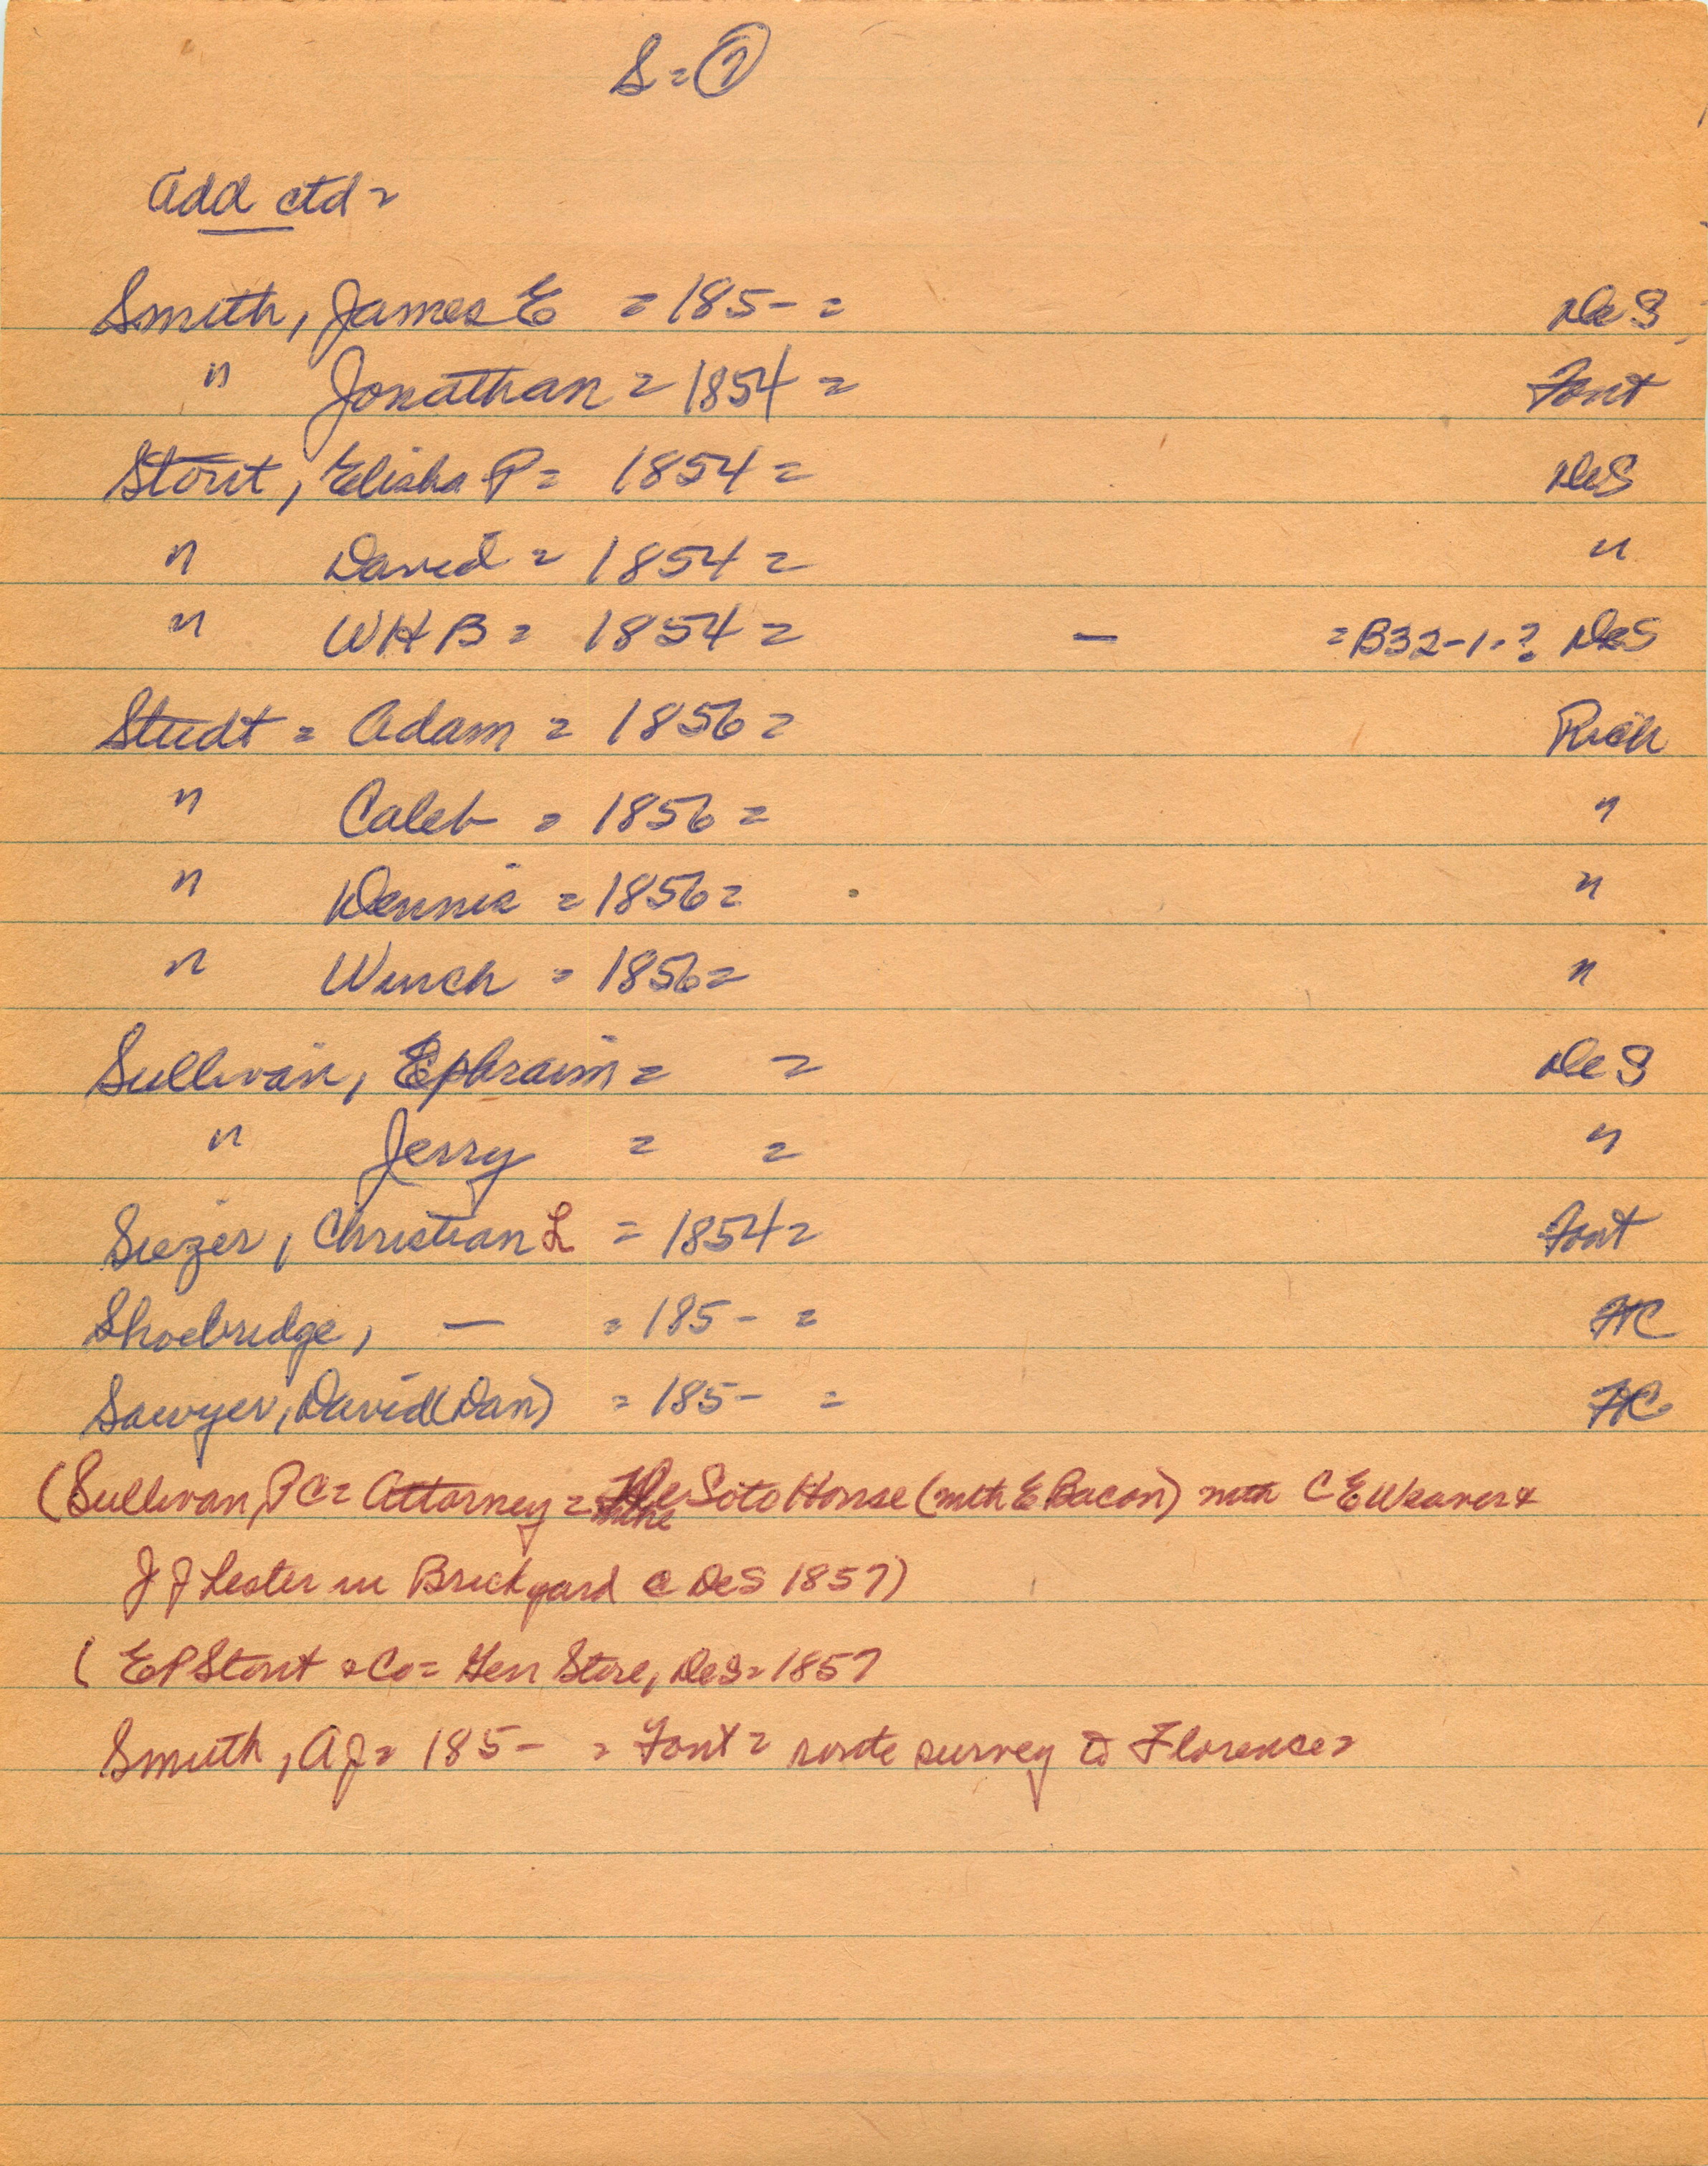 S = 7
Add ctd =
Smith, James E = 185- = DeS
" Jonathan = 1854 = Font
Stout, Elisha P = 1854 = DeS
" David = 1854 = "
" WHB = 1854 = - = B32-1-? DeS
Studt = Adam = 1856 = Rich
" Caleb = 1856 = "
" Dennis = 1856 = "
" Winch = 1856 = "
Sullivan, Ephraim = = DeS
" Jerry = = "
Siezer, Christian L = 1854 = Font
Shoebridge, - = 185- = FC
Sawyer, David (Dan) = 185- = FC
(Sullivan, P C = Attorney = De Soto House (with E Bacon) with C E Weaver &
J J Lester in Brickyard @ DeS 1857)
( E P Stout & Co = Gen Store, DeS = 1857
Smith, A J = 185- = Font = route survey to Florence =